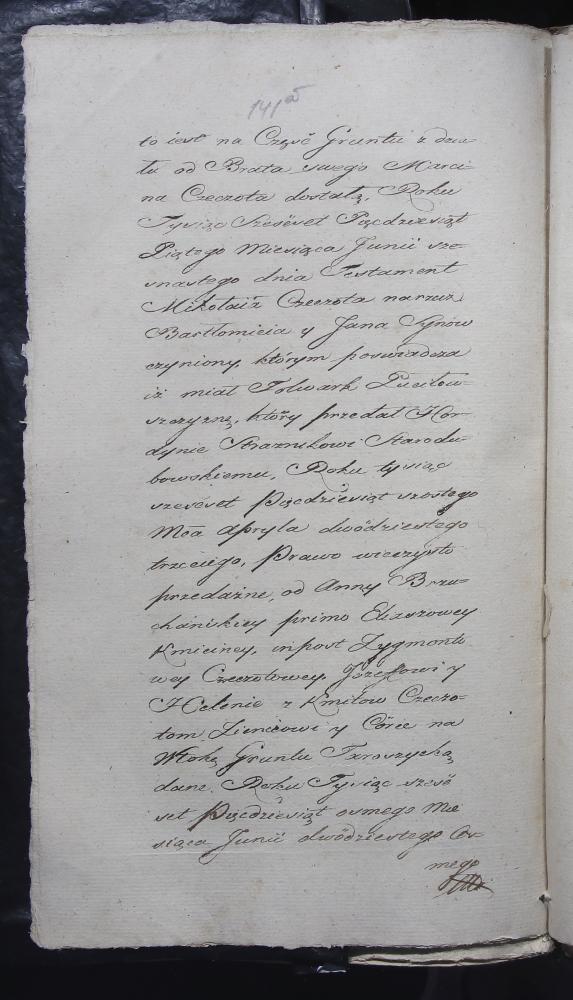 141
to iest na Część Gruntu z dzia-
łu od Brata swego Marci-
na Czeczota dostałą, Roku
Tysiąc Szesćset Pięcdziesiąt
Piątego Miesiąca Junii sze-
snastego dnia Testament
Mikołaia Czeczota na rzecz
Bartłomieia y Jana Synow
czyniony, którym poswiadcza
iż miał Folwark Puciłow-
szczyznę, który przedał Hor-
dynie Straznikowi Starodu-
bowskiemu, Roku tysiąc
szescset Pięcdziesiąt szostego
Mca Apryla dwódziestego
trzeciego, Prawo wieczysto
przedażne, od Anny Brzu-
chańskiey primo Eliaszowey
Kmiciney, in post Zygmonto
wey Czeczotowey, Józefowi y
Helenie z Kmitow Czeczo-
tom Zięciowi y Córce na
Włokę Gruntu Taroszycką
dane. Roku Tysiąc szesć
set Pięcdziesiąt osmego Mie
siąca Junii dwódziestego Os-
mego